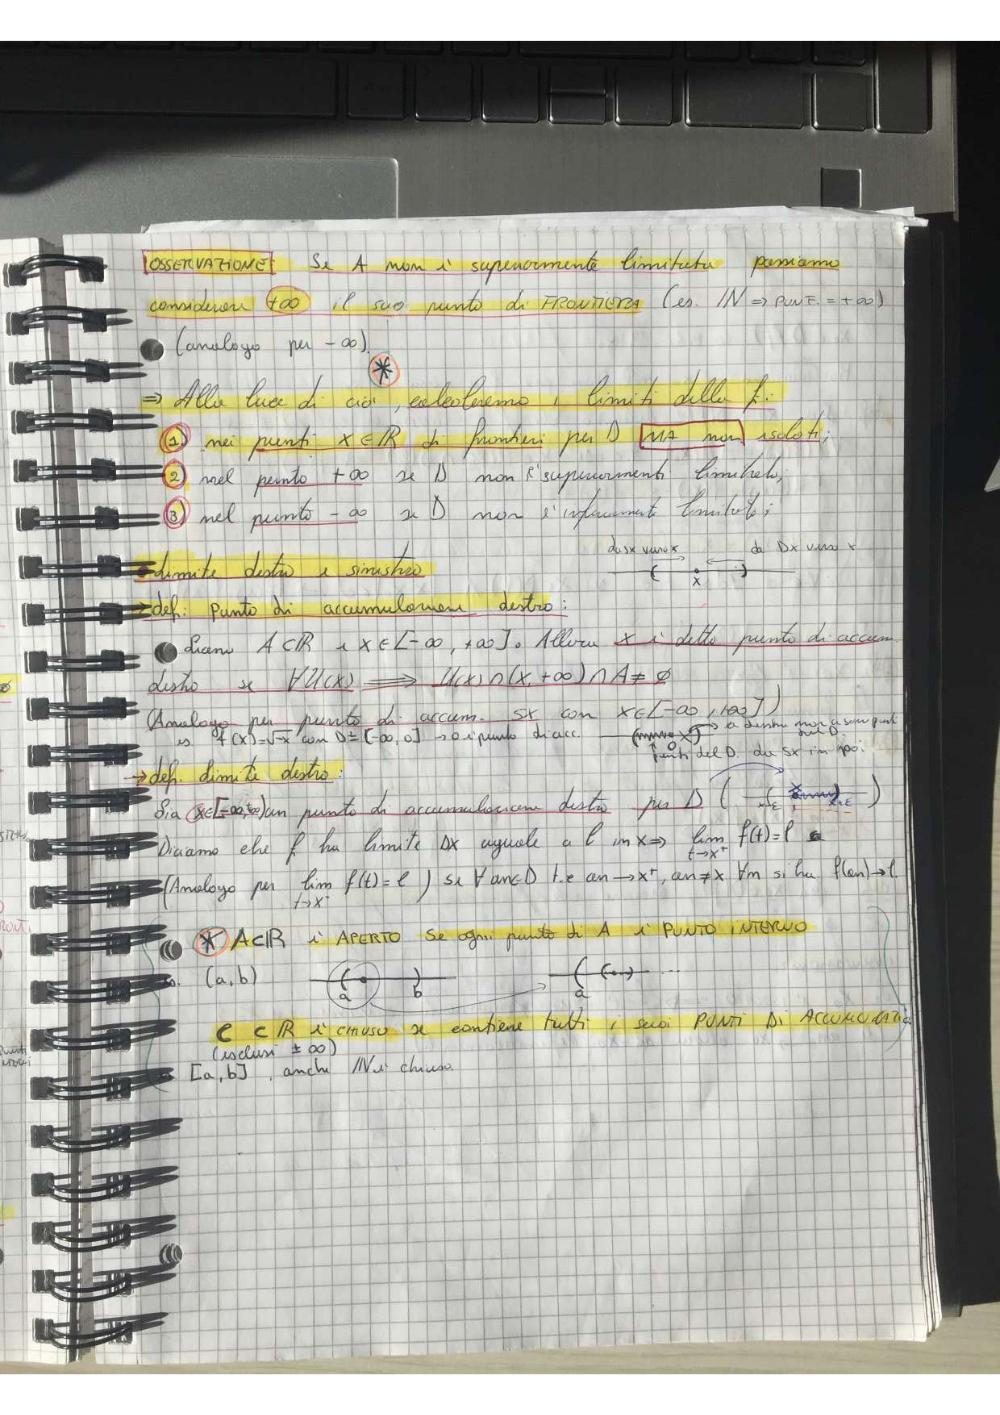 OSSERVAZIONE Se A non è superiormente limitata possiamo
considerare +∞ il suo punto di FRONTIERA (es. IN => PUNT. = +∞)
(analogo per -∞)
*
=> Alla luce di ciò, calcoleremo i limiti della f:
1) nei punti x∈R di frontiera per D MA non isolati;
2) nel punto +∞ se D non è superiormente limitato;
3) nel punto -∞ se D non è inferiormente limitato;
da sx verso x da Dx verso x
x
Limite destro e sinistro
→ def: Punto di accumulazione destro:
Siano A⊂R e x∈[-∞, +∞]. Allora x è detto punto di accum.
destro se ∀U(x) => U(x)∩(x,+∞)∩A≠∅
(Analogo per punto di accum. SX con x∈[-∞, +∞])
es f(x)=√-x con D=[-∞,0] → 0 è punto di acc.
a destra non ci sono punti del D.
0
punti del D da sx in poi.
→ def. Limite destro:
Sia x∈[-∞,+∞) un punto di accumulazione destro per D
Diciamo che f ha limite DX uguale a l in x => lim t→x⁺ f(t)=l
(Analogo per lim t→x⁻ f(t)=l) se ∀an∈D t.c an→x⁺, an≠x ∀n si ha f(an)→l
* A⊂R è APERTO Se ogni punto di A è PUNTO INTERNO
es. (a,b)
a b
a
...
C ⊂ R è chiuso se contiene tutti i suoi PUNTI DI ACCUMULAZIONE
(esclusi ±∞)
[a,b], anche IN è chiuso